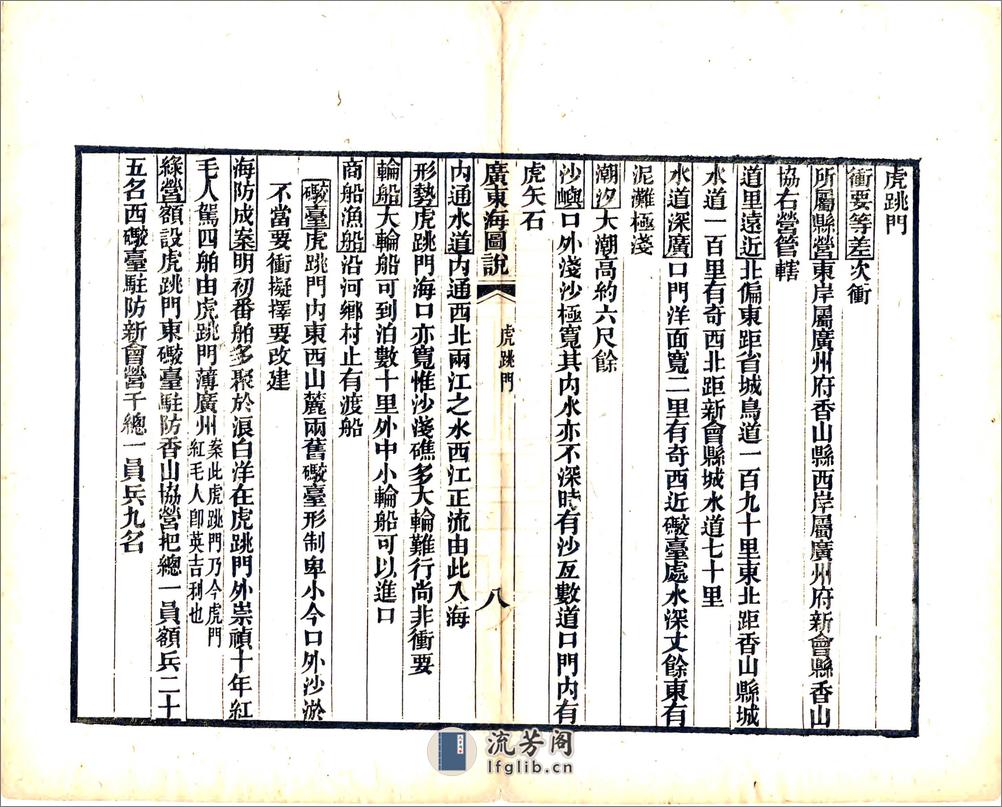 虎跳門
衝要等差次衝
所屬縣營東岸屬廣州府香山縣西岸屬廣州府新會縣香山
協右營管轄
道里遠近北偏東距省城鳥道一百九十里東北距香山縣城
水道一百里有奇西北距新會縣城水道七十里
水道深廣口門洋面寬二里有奇西近礮臺處水深丈餘東有
泥灘極淺
潮汐大潮高約六尺餘
沙嶼口外淺沙極寬其內水亦不深時有沙互數道口門內有
虎矢石
廣東海圖說
虎跳門
八
內通水道內通西北兩江之水西江正流由此入海
形勢虎跳門海口亦寬惟沙淺礁多大輪難行尚非衝要
輪船大輪船可到泊數十里外中小輪船可以進口
商船漁船沿河鄉村止有渡船
礮臺虎跳門內東西山麓兩舊礮臺形制卑小今口外沙淤
不當要衝擬擇要改建
海防成案明初番舶多聚於浪白洋在虎跳門外崇禎十年紅
毛人駕四舶由虎跳門薄廣州案此虎跳門乃今虎門
紅毛人卽英吉利也
綠營額設虎跳門東礮臺駐防香山協營把總一員額兵二十
五名西礮臺駐防新會營千總一員兵九名
流芳阁
lfglib.cn